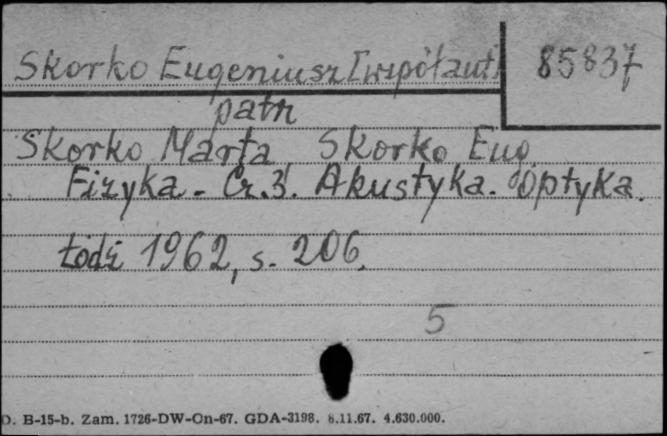 Skorko Eugeniusz [współaut]
85837
patrz
Skorko Marta Skorko Eug.
Fizyka. Cz. 3. Akustyka. Optyka.
Łódź 1962, s. 206.
5
D. B-15-b. Zam. 1726-DW-On-67. GDA-3198. 8.11.67. 4.630.000.